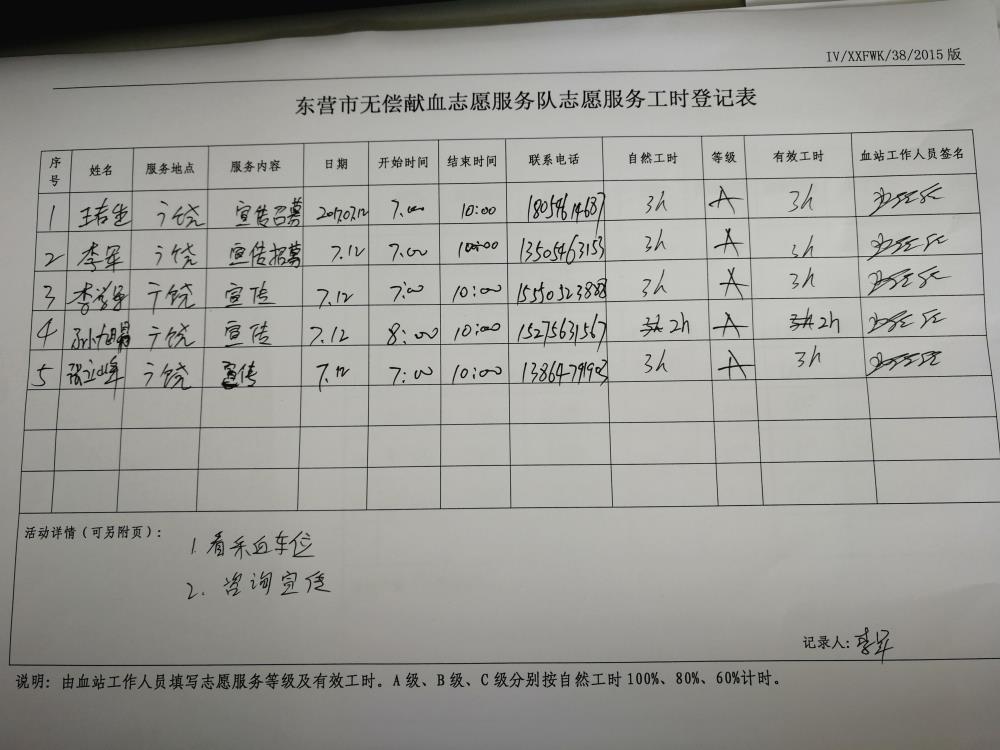 IV/XXFWK/38/2015版
东营市无偿献血志愿服务队志愿服务工时登记表
序号 姓名 服务地点 服务内容 日期 开始时间 结束时间 联系电话 自然工时 等级 有效工时 血站工作人员签名
1 广饶 宣传招募 7:00 10:00 18054614687 3h A 3h
2 李军 广饶 宣传招募 7.12 7:00 10:00 13505463153 3h A 3h
3 广饶 宣传 7.12 7:00 10:00 3h A 3h
4 广饶 宣传 7.12 8:00 10:00 15275631567 2h A 2h
5 广饶 宣传 7.12 7:00 10:00 3h A 3h
活动详情（可另附页）：
1.看采血车位
2.咨询宣传
记录人：李军
说明：由血站工作人员填写志愿服务等级及有效工时。A级、B级、C级分别按自然工时100%、80%、60%计时。